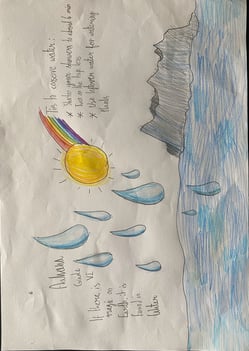 Tips to conserve water:
* Shorten your showers to about 5 min
* Turn the tap
* Use leftover water for watering
plants
Grade VI
If there is
magic on
Earth, it is
found in
Water